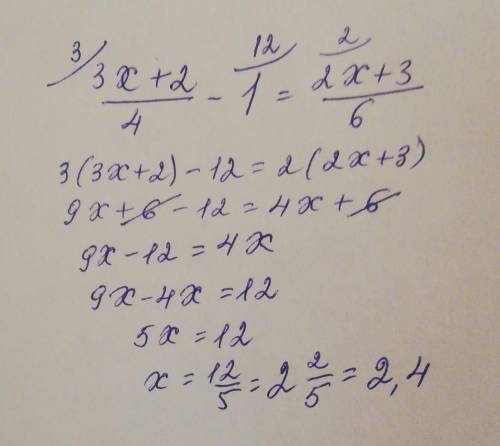 3/ (3x+2)/4 - 12/ 1 = 2/ (2x+3)/6
3(3x+2)-12=2(2x+3)
9x+6-12=4x+6
9x-12=4x
9x-4x=12
5x=12
x=12/5=2 2/5=2,4